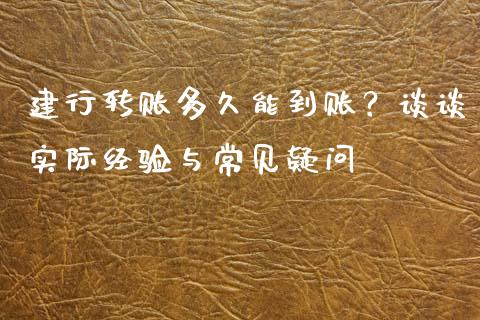 建行转账多久能到账？谈谈
实际经验与常见疑问